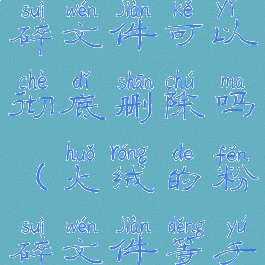 suì wén jiàn kě yǐ
碎文件可以
chè dǐ shān chú ma
彻底删除吗
huǒ róng de fěn
(火绒的粉
suì wén jiàn děng yú
碎文件等于